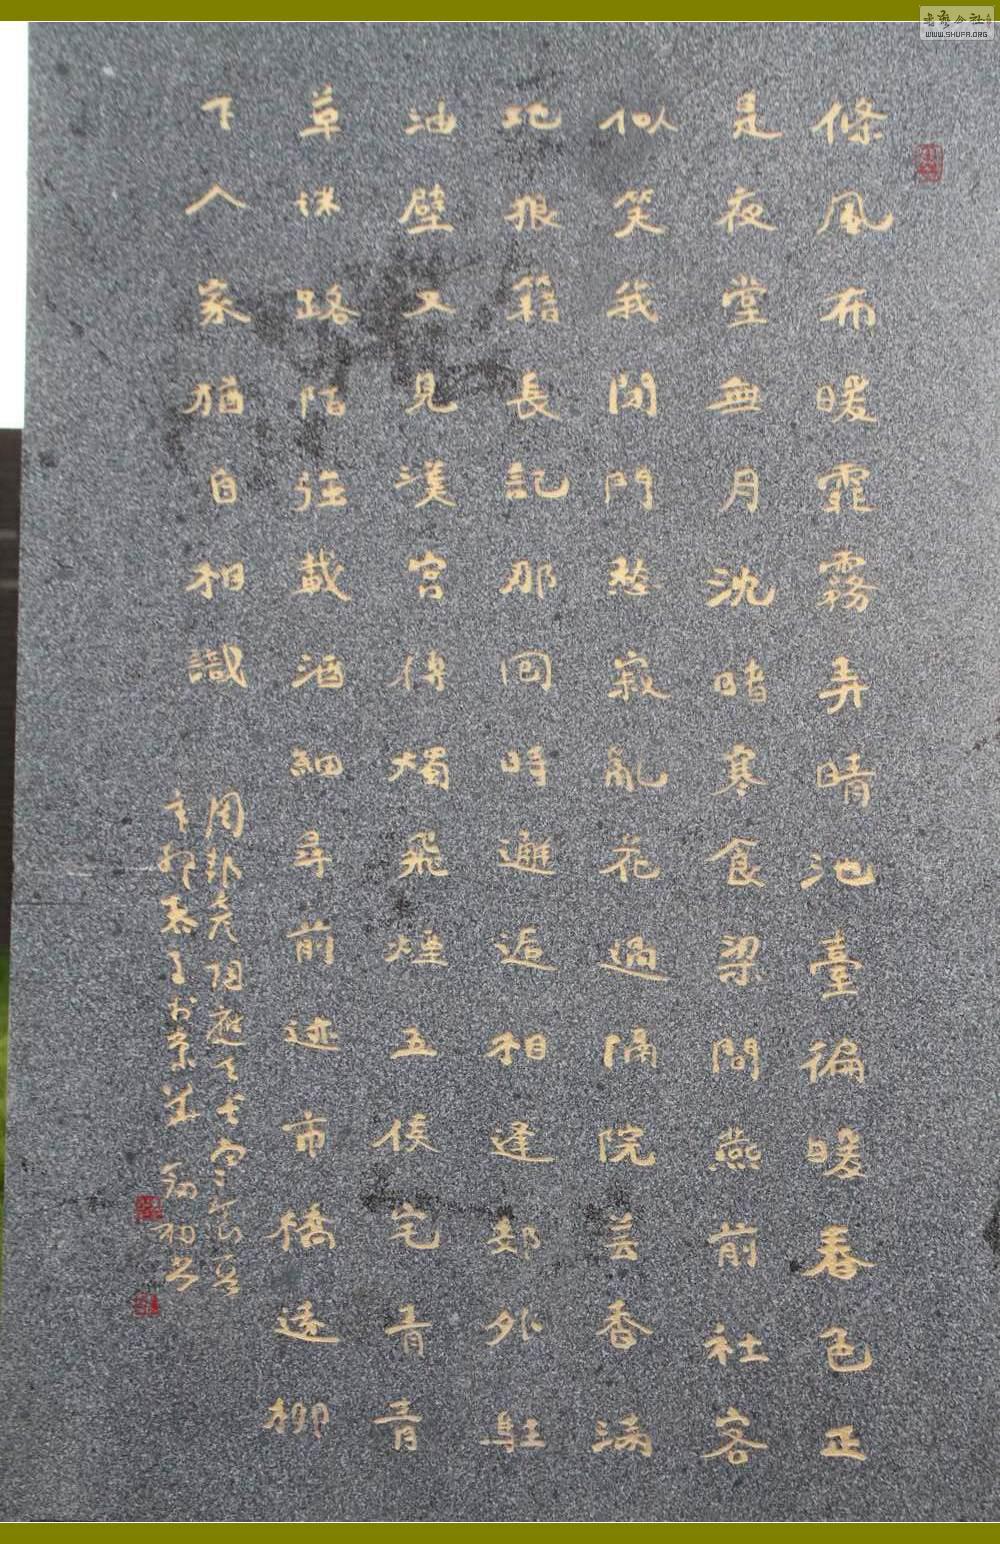 條風布暖霏霧弄晴池臺徧暖春色正
是夜堂無月沈暗寒食梁間燕前社客
似笑我閉門愁寂亂花過隔院芸香滿
地狼籍長記那回時邂逅相逢郊外駐
油壁又見漢宮傳燭飛煙五侯宅青青
草迷路陌強載酒細尋前迹市橋遠柳
下人家猶自相識
周邦彥
WWW.SHUFA.ORG